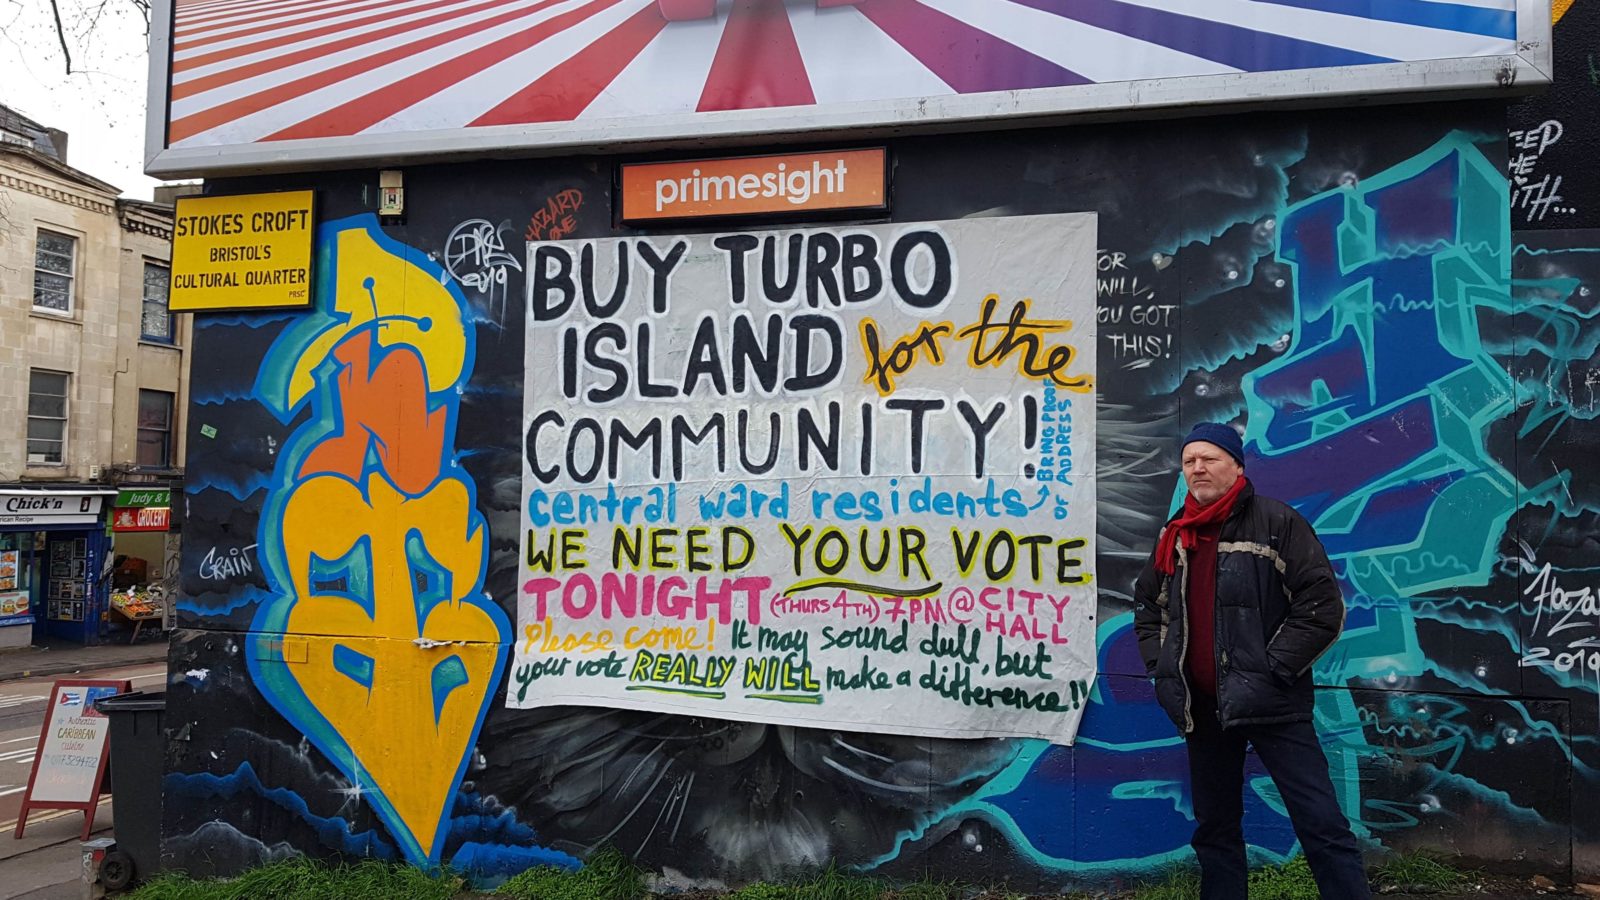 primesight
STOKES CROFT
BRISTOL'S
CULTURAL QUARTER
PRSC
HAZARD
ONE
BUY TURBO
ISLAND for the
COMMUNITY!
BRING PROOF
OF ADDRESS
central ward residents
WE NEED YOUR VOTE
TONIGHT (THURS 4TH) 7PM @ CITY
HALL
Please come! It may sound dull, but
your vote REALLY WILL make a difference!!
WILL,
YOU GOT
THIS!
Chick'n
Judy &
GROCERY
Authentic
CARIBBEAN
cuisine
2019